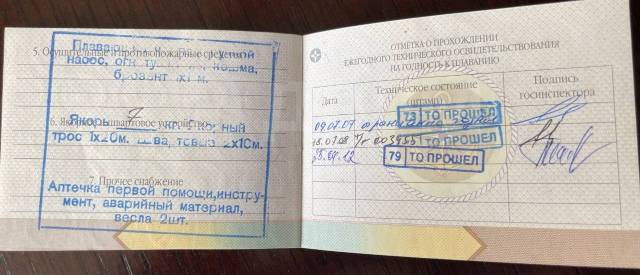 5. Осушительные и противопожарные средства
Плавающий
насос, кошма,
брезент 1х1 м.
6. Якорно-швартовое устройство
Якорь 7 кг,
трос 1х20м. 2х10м.
7. Прочее снабжение
Аптечка первой помощи,инстру-
мент, аварийный материал,
весла 2шт.
ОТМЕТКА О ПРОХОЖДЕНИИ
ЕЖЕГОДНОГО ТЕХНИЧЕСКОГО ОСВИДЕТЕЛЬСТВОВАНИЯ
НА ГОДНОСТЬ К ПЛАВАНИЮ
Дата
Техническое состояние
(штамп)
Подпись
госинспектора
09.07.07
73 ТО ПРОШЕЛ
18.07.08
ТО ПРОШЕЛ
79 ТО ПРОШЕЛ